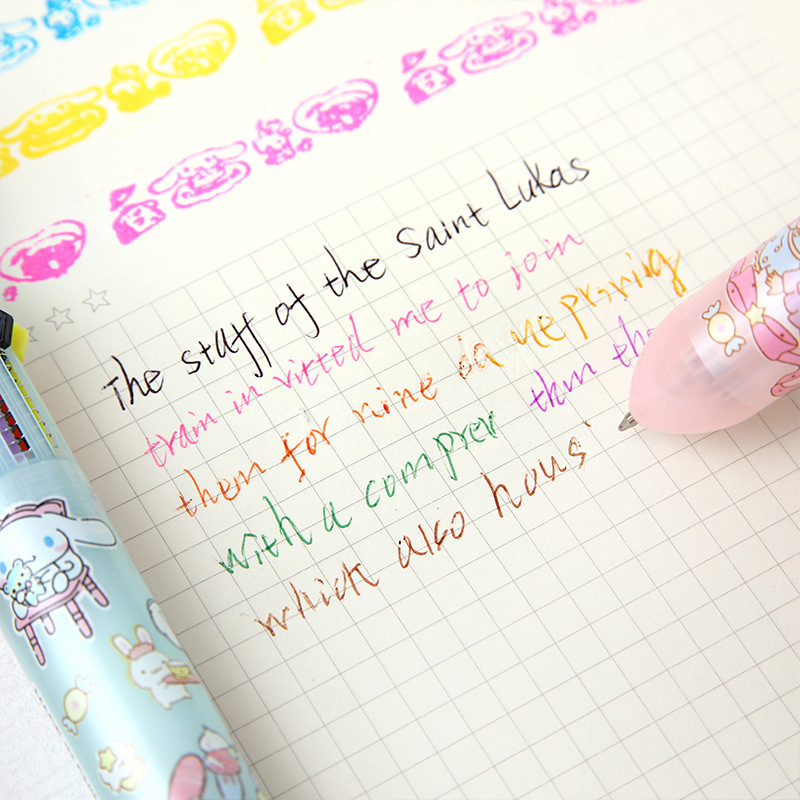 The staff of the Saint Lukas
train in vitted me to join
them for nine
with a comprer thm the
which also hous